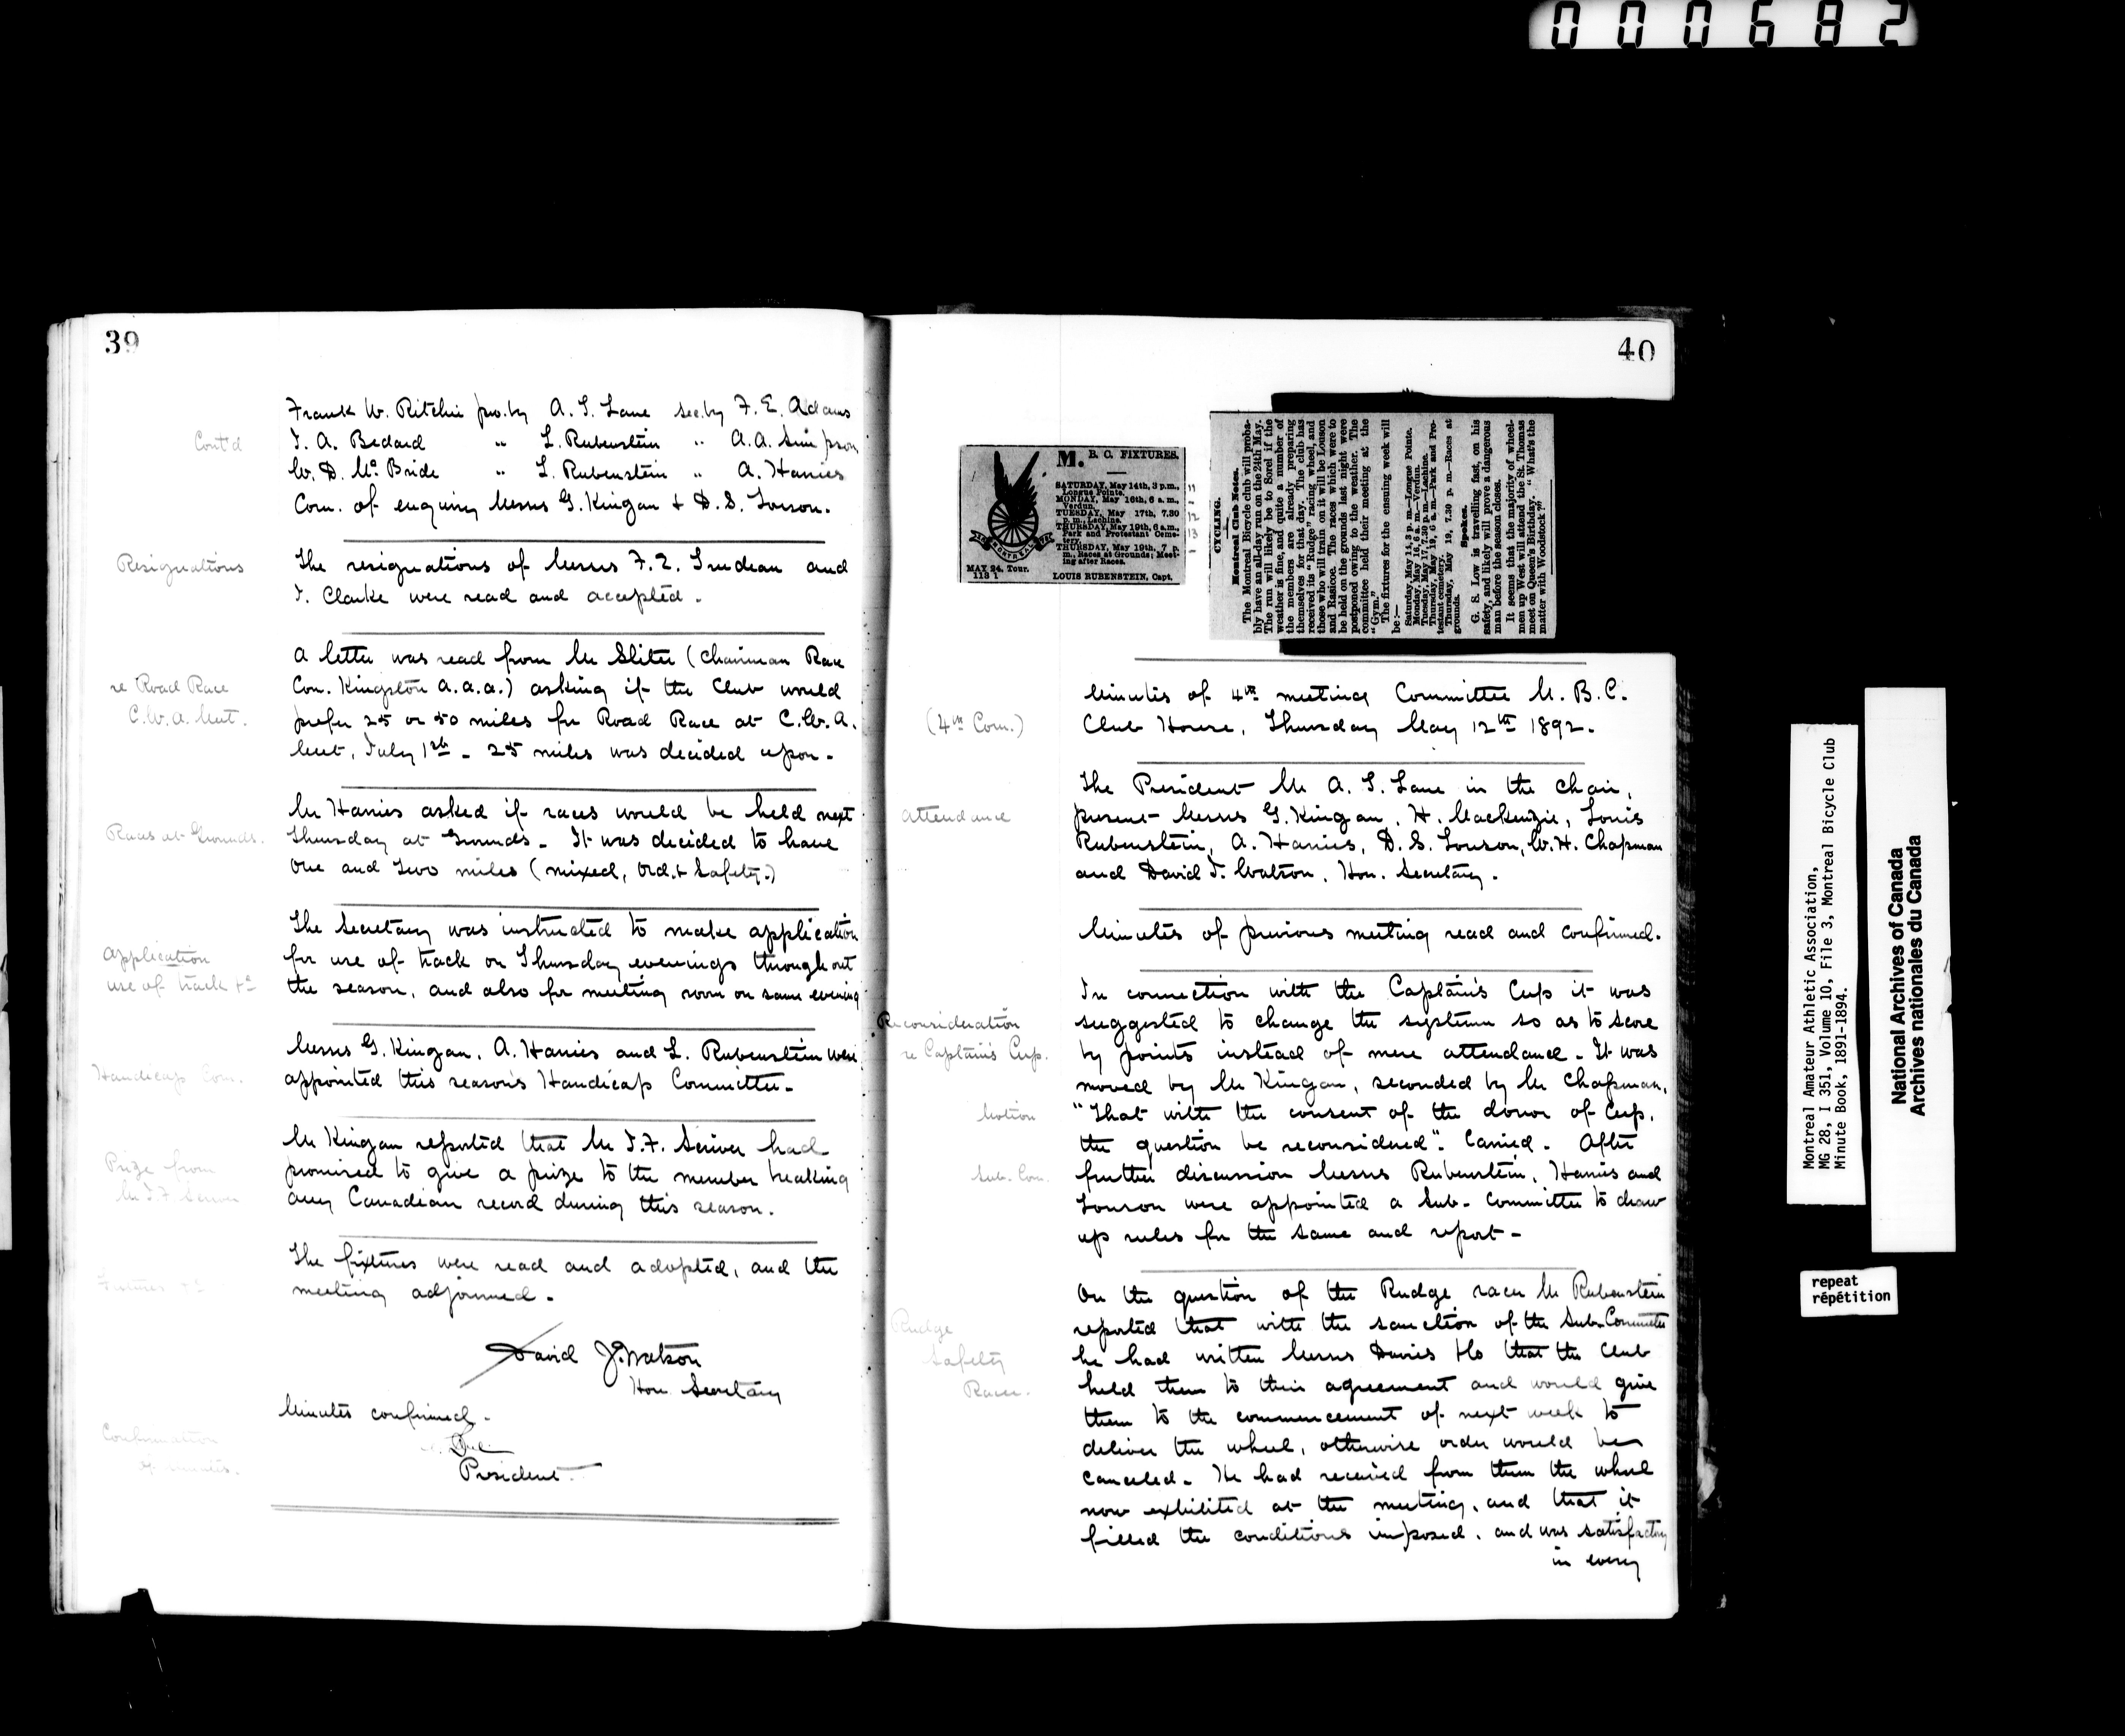 000682
39
Cont'd
Frank W. Ritchie pro. by A. T. Lane sec. by F. E. Adams
J. A. Bedard " L. Rubenstein " A. A. Simpson
W. D. McBride " L. Rubenstein " A. Harries
Com. of enquiry Messrs G. Kingan & D. S. Louson.
Resignations
The resignations of Messrs F. Z. Trudeau and
J. Clarke were read and accepted.
re Road Race
C.W.A. Meet.
A letter was read from Mr Sliter (Chairman Race
Com. Kingston A.A.A.) asking if the Club would
prefer 25 or 50 miles for Road Race at C.W.A.
Meet, July 1st - 25 miles was decided upon.
Races at Grounds.
Mr Harries asked if races would be held next
Thursday at Grounds. It was decided to have
One and Two miles (mixed, Ord. & Safety.)
Application
use of track &c
The Secretary was instructed to make application
for use of track on Thursday evenings throughout
the season, and also for meeting room on same evening
Handicap Com.
Messrs G. Kingan, A. Harries and L. Rubenstein were
appointed this season's Handicap Committee.
Prize from
Mr J. F. Scriver
Mr Kingan reported that Mr J. F. Scriver had
promised to give a prize to the member breaking
any Canadian record during this season.
Fixtures &c
The fixtures were read and adopted, and the
meeting adjourned.
David J. Watson
Hon. Secretary
Confirmation
of minutes.
Minutes confirmed.
President.
40
M. B. C. FIXTURES.
SATURDAY, May 14th, 3 p.m.,
Longue Pointe.
MONDAY, May 16th, 6 a.m.,
Verdun.
TUESDAY, May 17th, 7.30
p. m., Lachine.
THURSDAY, May 19th, 6 a.m.,
Park and Protestant Ceme-
tery.
THURSDAY, May 19th, 7 p.
m., Races at Grounds; Meet-
ing after Races.
MAY 24, Tour.
113 1
LOUIS RUBENSTEIN, Capt.
MONTREAL
CYCLING.
Montreal Club Notes.
The Montreal Bicycle club will proba-
bly have an all-day run on the 24th May.
The run will likely be to Sorel if the
weather is fine, and quite a number of
the members are already preparing
themselves for that day. The club has
received its "Rudge" racing wheel, and
those who will train on it will be Louson
and Rasicoe. The races which were to
be held on the grounds last night were
postponed owing to the weather. The
committee held their meeting at the
"Gym."
The fixtures for the ensuing week will
be:—
Saturday, May 14, 3 p. m.—Longue Pointe.
Monday, May 16, 6 a. m.—Verdun.
Tuesday, May 17, 7.30 p. m.—Lachine.
Thursday, May 19, 6 a. m.—Park and Pro-
testant cemetery.
Thursday, May 19, 7.30 p. m.—Races at
grounds.
Spokes.
G. S. Low is travelling fast, on his
safety, and likely will prove a dangerous
man before the season closes.
It seems that the majority of wheel-
men up West will attend the St. Thomas
meet on Queen's Birthday. "What's the
matter with Woodstock?"
(4th Com.)
Minutes of 4th meeting Committee M. B. C.
Club House, Thursday May 12th 1892.
Attendance
The President Mr A. T. Lane in the chair,
present Messrs G. Kingan, H. Mackenzie, Louis
Rubenstein, A. Harries, D. S. Louson, W. H. Chapman
and David J. Watson, Hon. Secretary.
Minutes of previous meeting read and confirmed.
Reconsideration
re Captain's Cup.
In connection with the Captain's Cup it was
suggested to change the systemn so as to score
by points instead of mere attendance. It was
moved by Mr Kingan, seconded by Mr Chapman,
Motion
"That with the consent of the donor of Cup,
the question be reconsidered". Carried. After
Sub. Com.
further discussion Messrs Rubenstein, Harries and
Louson were appointed a Sub-Committee to draw
up rules for the same and report-
Rudge
Safety
Racer.
On the question of the Rudge racer Mr Rubenstein
reported that with the sanction of the Sub-Committee
he had written Messrs Davies &Co that the Club
held them to their agreement and would give
them to the commencement of next week to
deliver the wheel, otherwise order would be
canceled. He had received from them the wheel
now exhibited at the meeting, and that it
filled the conditions imposed, and was satisfactory
in every
Montreal Amateur Athletic Association,
MG 28, I 351, Volume 10, File 3, Montreal Bicycle Club
Minute Book, 1891-1894.
National Archives of Canada
Archives nationales du Canada
repeat
répétition